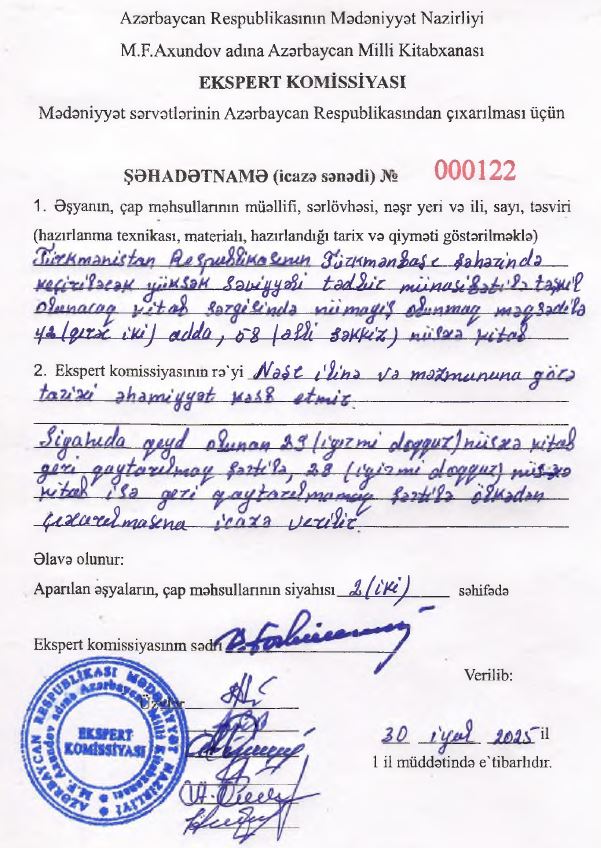 Azərbaycan Respublikasının Mədəniyyət Nazirliyi
M.F.Axundov adına Azərbaycan Milli Kitabxanası
EKSPERT KOMİSSİYASI
Mədəniyyət sərvətlərinin Azərbaycan Respublikasından çıxarılması üçün
ŞƏHADƏTNAMƏ (icazə sənədi) № 000122
1. Əşyanın, çap məhsullarının müəllifi, sərlövhəsi, nəşr yeri və ili, sayı, təsviri
(hazırlanma texnikası, materialı, hazırlandığı tarix və qiyməti göstərilməklə)
Türkmənistan Respublikasının Türkmənbaşı şəhərində
keçiriləcək yüksək səviyyəli tədbir münasibətilə təşkil
olunacaq kitab sərgisində nümayiş olunmaq məqsədilə
42 (qırx iki) adda, 58 (əlli səkkiz) nüsxə kitab
2. Ekspert komissiyasının rə`yi Nəşr ilinə və məzmununa görə
tarixi əhəmiyyət kəsb etmir.
Siyahıda qeyd olunan 29 (iyirmi doqquz) nüsxə kitab
geri qaytarılmaq şərtilə, 29 (iyirmi doqquz) nüsxə
kitab isə geri qaytarılmamaq şərtilə ölkədən
çıxarılmasına icazə verilir.
Əlavə olunur:
Aparılan əşyaların, çap məhsullarının siyahısı 2 (iki) səhifədə
Ekspert komissiyasının sədri
Verilib:
Üzvlər
30 iyul 2025 il
1 il müddətində e`tibarlıdır.
AZƏRBAYCAN RESPUBLİKASI MƏDƏNİYYƏT NAZİRLİYİ
M.F. Axundov adına Azərbaycan Milli Kitabxanası
EKSPERT
KOMİSSİYASI